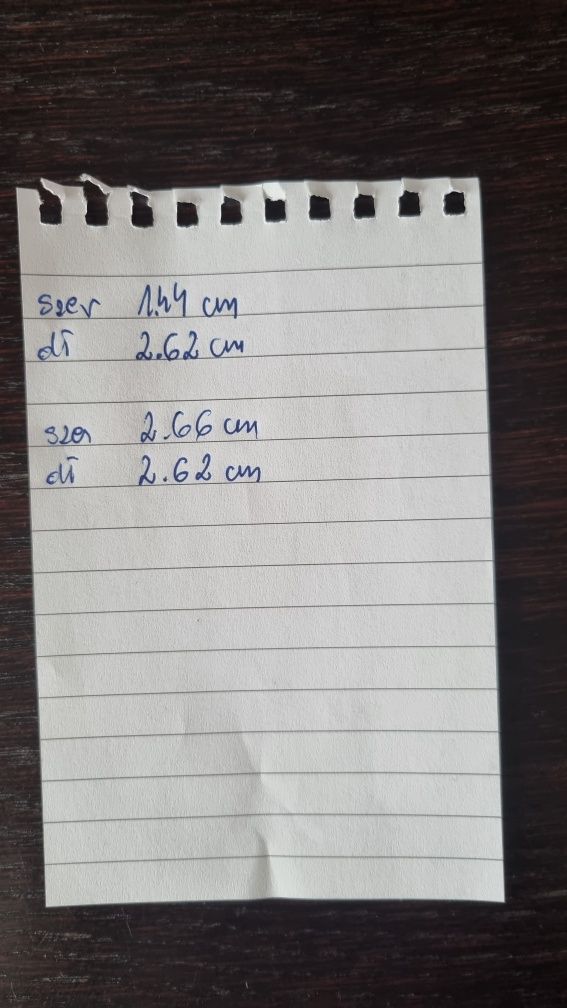 szer 1.44 cm
dł 2.62 cm
szer 2.66 cm
dł 2.62 cm